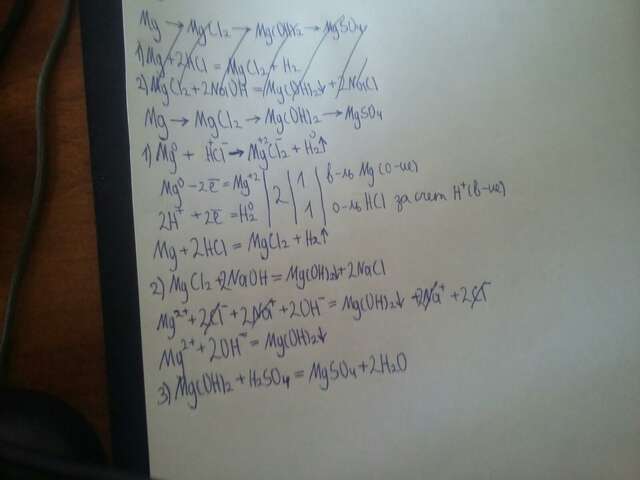 Mg → MgCl₂ → Mg(OH)₂ → MgSO₄
1) Mg + 2HCl = MgCl₂ + H₂
2) MgCl₂ + 2NaOH = Mg(OH)₂↓ + 2NaCl
Mg → MgCl₂ → Mg(OH)₂ → MgSO₄
1) Mg⁰ + H⁺Cl⁻ → Mg⁺²Cl₂⁻ + H₂⁰↑
Mg⁰ - 2ē = Mg⁺² | 2 | 1 | в-ль Mg (о-ие)
2H⁺ + 2ē = H₂⁰ | | 1 | о-ль HCl за счет H⁺ (в-ие)
Mg + 2HCl = MgCl₂ + H₂↑
2) MgCl₂ + 2NaOH = Mg(OH)₂↓ + 2NaCl
Mg²⁺ + 2Cl⁻ + 2Na⁺ + 2OH⁻ = Mg(OH)₂↓ + 2Na⁺ + 2Cl⁻
Mg²⁺ + 2OH⁻ = Mg(OH)₂↓
3) Mg(OH)₂ + H₂SO₄ = MgSO₄ + 2H₂O